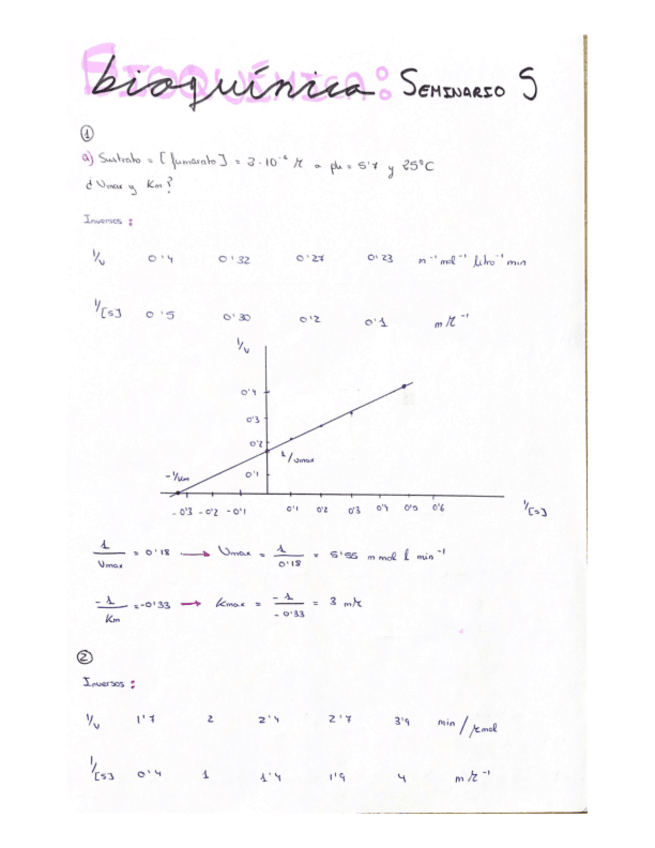 bioquímica SEMINARIO 5
BIOQUÍMICA:
1
a) Sustrato = [fumarato] = 3·10⁻⁶ M a ph = 5'7 y 25°C
¿Vmax y Km?
Inversos:
1/v 0'4 0'32 0'27 0'23 n⁻¹ mol⁻¹ litro⁻¹ min
1/[s] 0'5 0'30 0'2 0'1 mM⁻¹
1/v
0'4
0'3
0'2
0'1
1/vmax
-1/km
-0'3 -0'2 -0'1 0'1 0'2 0'3 0'4 0'5 0'6 1/[s]
1/Vmax = 0'18 → Vmax = 1/0'18 = 5'55 m mol l min⁻¹
-1/Km = -0'33 → Kmax = -1/-0'33 = 3 mM
2
Inversos:
1/v 1'7 2 2'4 2'7 3'9 min/μmol
1/[s] 0'4 1 1'4 1'9 4 mM⁻¹